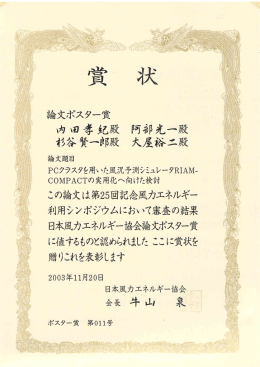 賞状
論文ポスター賞
内田孝紀殿 阿部光一殿
杉谷賢一郎殿 大屋裕二殿
論文題目
PCクラスタを用いた風況予測シミュレータRIAM-
COMPACTの実用化へ向けた検討
この論文は第25回記念風力エネルギー
利用シンポジウムにおいて審査の結果
日本風力エネルギー協会論文ポスター賞
に値するものと認められました ここに賞状を
贈りこれを表彰します
2003年11月20日
日本風力エネルギー協会
会長 牛山 泉
ポスター賞 第011号